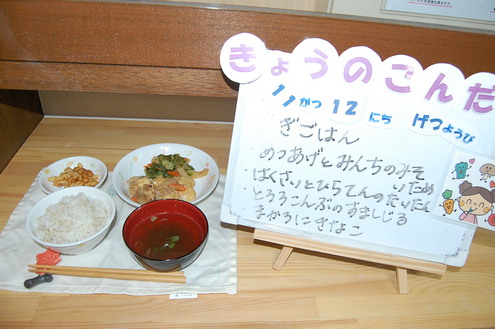 きょうのこんだ
11がつ12にち げつようび
ぎごはん
めつあげとみんちのみそ
いため
はくさいとひらてんのたいたん
とろろこんぶのすましじる
まかろにきなこ